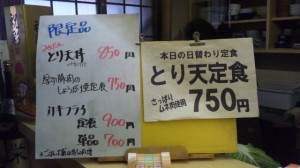 限定品
とり天丼 850円
しょうが焼定食 750円
カキフライ
定食 900円
単品 700円
本日の日替わり定食
とり天定食
さっぱり
ムネ肉使用
750円